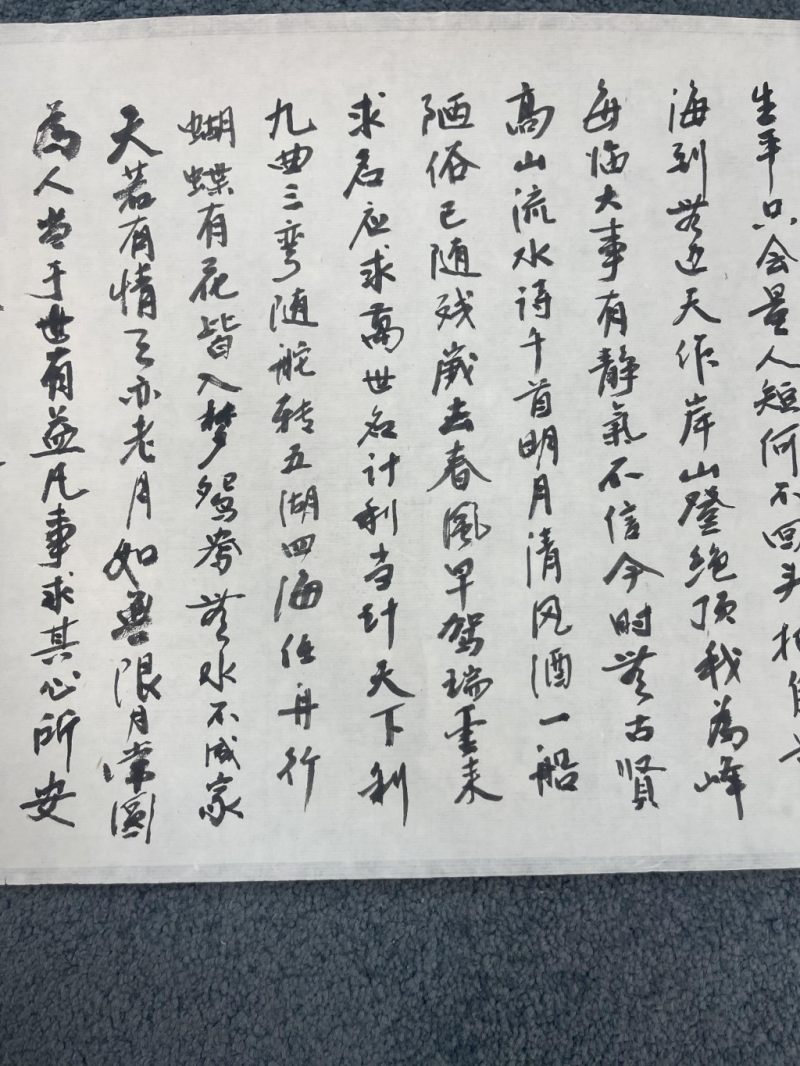 生平只会量人短何不回头把自
海到無边天作岸山登绝顶我為峰
每临大事有静氣不信今时無古贤
高山流水诗千首明月清风酒一船
陋俗已随残岁去春風早驾瑞雲来
求名应求萬世名计利当计天下利
九曲三弯随舵转五湖四海任舟行
蝴蝶有花皆入梦鸳鸯無水不成家
天若有情天亦老月如無限月常圆
為人当于世有益凡事求其心所安